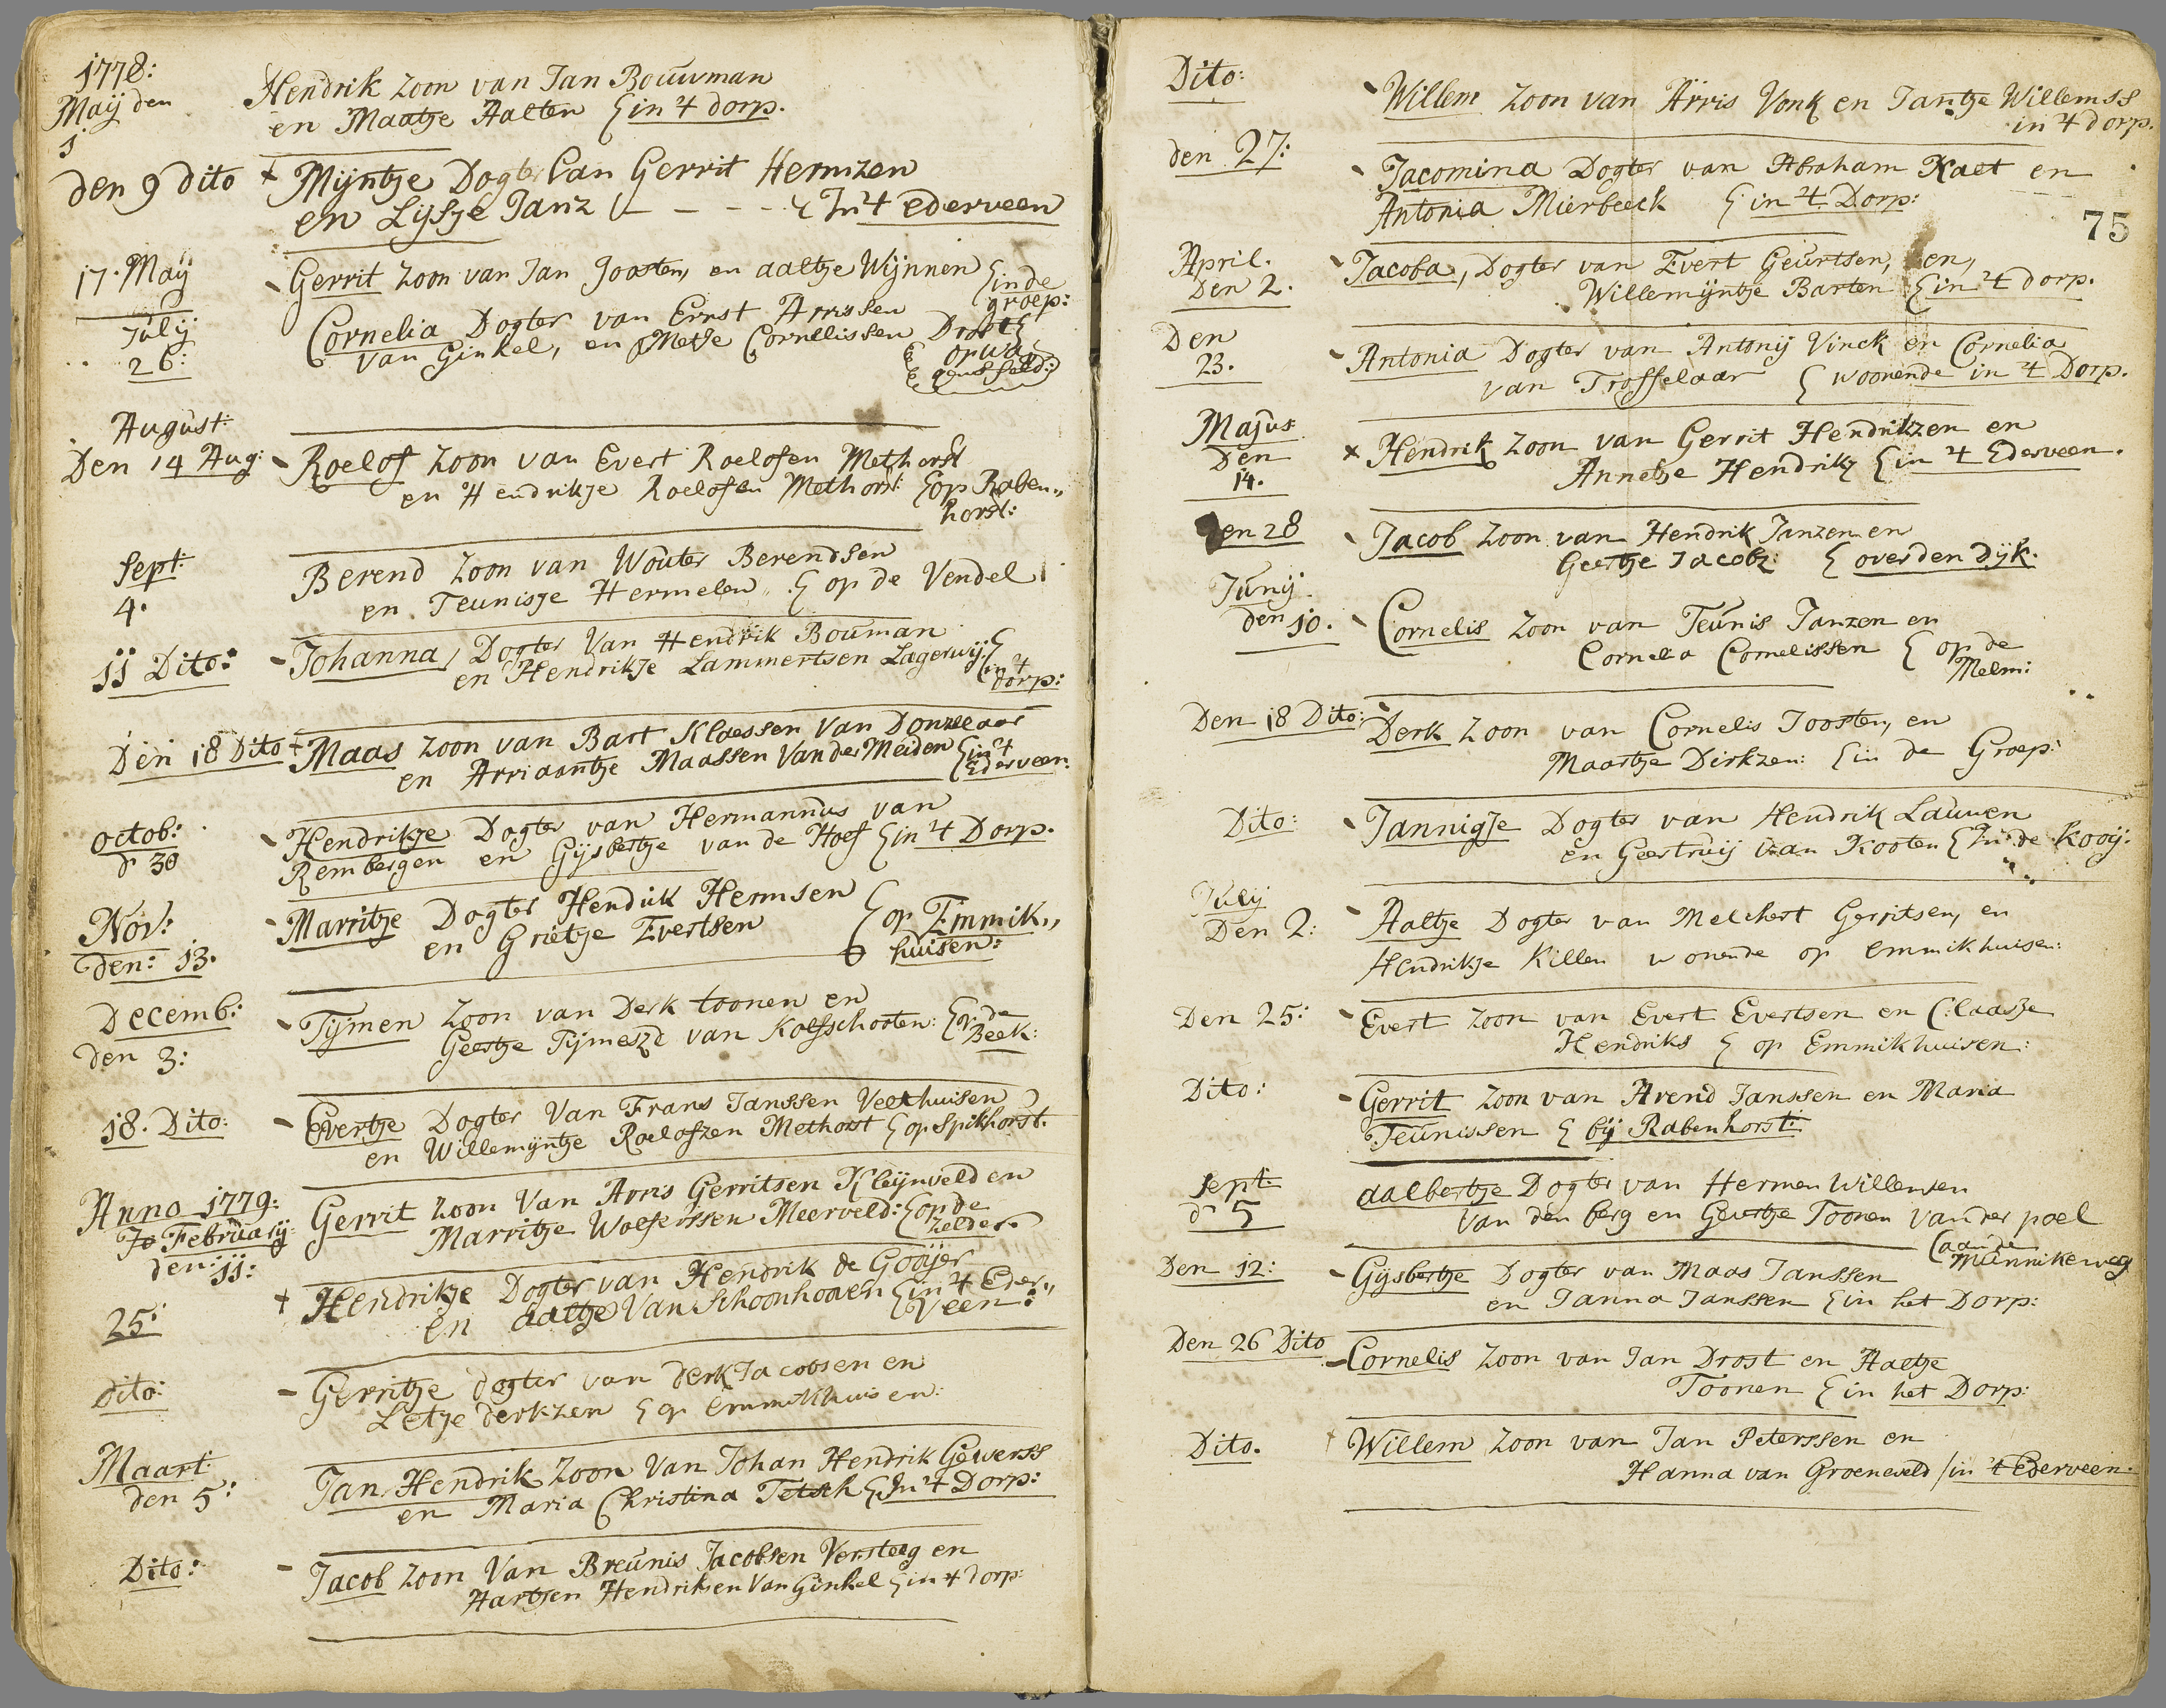 1778:
Maij den
1
Hendrik zoon van Jan Bouwman
en Maatje Aalten in 't dorp.
den 9 dito
Mijntje Dogter van Gerrit Hermzen
en Lijsje Janz - - - In 't ederveen
17. Maij
Gerrit zoon van Jan Joosten, en aaltje Wijnnen in de
groep:
Julij
26:
Cornelia Dogter van Ernst Arrissen
van Ginkel, en Metje Cornelissen
August:
Den 14 Aug:
Roelof zoon van Evert Roelofsen Methorst
en Hendrikje Roelofsen Methorst op Raben„
horst:
Sept:
4.
Berend zoon van Wouter Berendsen
en Teunisje Hermelen op de Vendel
11 Dito:
Johanna, Dogter Van Hendrik Bouman
en Hendrikje Lammertsen Lagerwij
in 't
dorp:
Den 18 Dito
Maas zoon van Bart Klaessen Van Donzelaar
en Arriaantje Maassen Van der Meiden in 't
Ederveen:
octob:
d 30
Hendrikje Dogter van Hermannus van
Rembergen en Gijsbertje van de Hoef in 't Dorp.
Nov:
den: 13.
Marritje Dogter Hendrik Hermsen
en Grietje Evertsen op Emmik„
huisen:
Decemb:
den 3:
Tijmen zoon van Derk toonen en
Geertje Tijmeszd van Kolfschooten: op de
Beek:
18. Dito:
Evertje Dogter Van Frans Janssen Veethuisen
en Willemijntje Roelofzen Methorst op Spikhorst.
Anno 1779:
Februarij
den: 11:
Gerrit zoon Van Arris Gerritsen Kleijnveld en
Marritje Wolferssen Meerveld: op de
Zelder
25:
Hendrikje Dogter van Hendrik de Gooijer
en aaltje Van Schoonhoven in 't Eder„
veen:
dito:
Gerritje dogter van derk Jacobsen en
Letje derkzen op Emmikhuisen:
Maart:
den 5:
Jan Hendrik Zoon Van Johan Hendrik Gewerss
en Maria Christina Tetsch In 't Dorp:
Dito:
Jacob zoon Van Breunis Jacobsen Versteeg en
Hartjen Hendriksen Van Ginkel in 't dorp:
Dito:
Willem zoon van Arris Vonk en Jantje Willemss
in 't dorp.
den 27:
Jacomina Dogter van Abraham Kaet en
Antonia Mierbeek in 't Dorp:
75
April.
Den 2.
Jacoba, Dogter van Evert Geurtsen, en,
Willemijntje Barten in 't dorp.
Den
23.
Antonia Dogter van Antonij Vinck en Cornelia
van Trosselaar woonende in 't Dorp.
Majus
Den
14.
Hendrik zoon van Gerrit Hendrikzen en
Annetje Hendrikz in 't Ederveen.
Den 28
Jacob zoon van Hendrik Janzen en
Geertje Jacobz: over den dijk.
Junij.
den 10.
Cornelis zoon van Teunis Janzen en
Cornelia Cornelissen op de
Melm:
Den 18 Dito:
Derk zoon van Cornelis Joosten, en
Maartje Dirkzen: in de Groep:
Dito:
Jannigje Dogter van Hendrik Lauwen
en Geertruij van Kooten In de Kooij:
Julij
Den 2:
Aaltje Dogter van Melchert Gerritsen, en
Hendrikje Killen wonende op Emmikhuisen:
Den 25:
Evert zoon van Evert Evertsen en Claasje
Hendriks op Emmikhuisen:
Dito:
Gerrit zoon van Arend Janssen en Maria
Teunissen bij Rabenhorst:
Sept:
d 5
aalbertje Dogter van Hermen Willemsen
van den berg en Geertje Toonen van der poel
aan de
Munnikeweg
Den 12:
Gijsbertje Dogter van Maas Janssen
en Janna Janssen in het Dorp:
Den 26 Dito
Cornelis zoon van Jan Drost en Aaltje
Toonen in het Dorp:
Dito.
Willem zoon van Jan Peterssen en
Hanna van Groeneveld / in 't Ederveen.